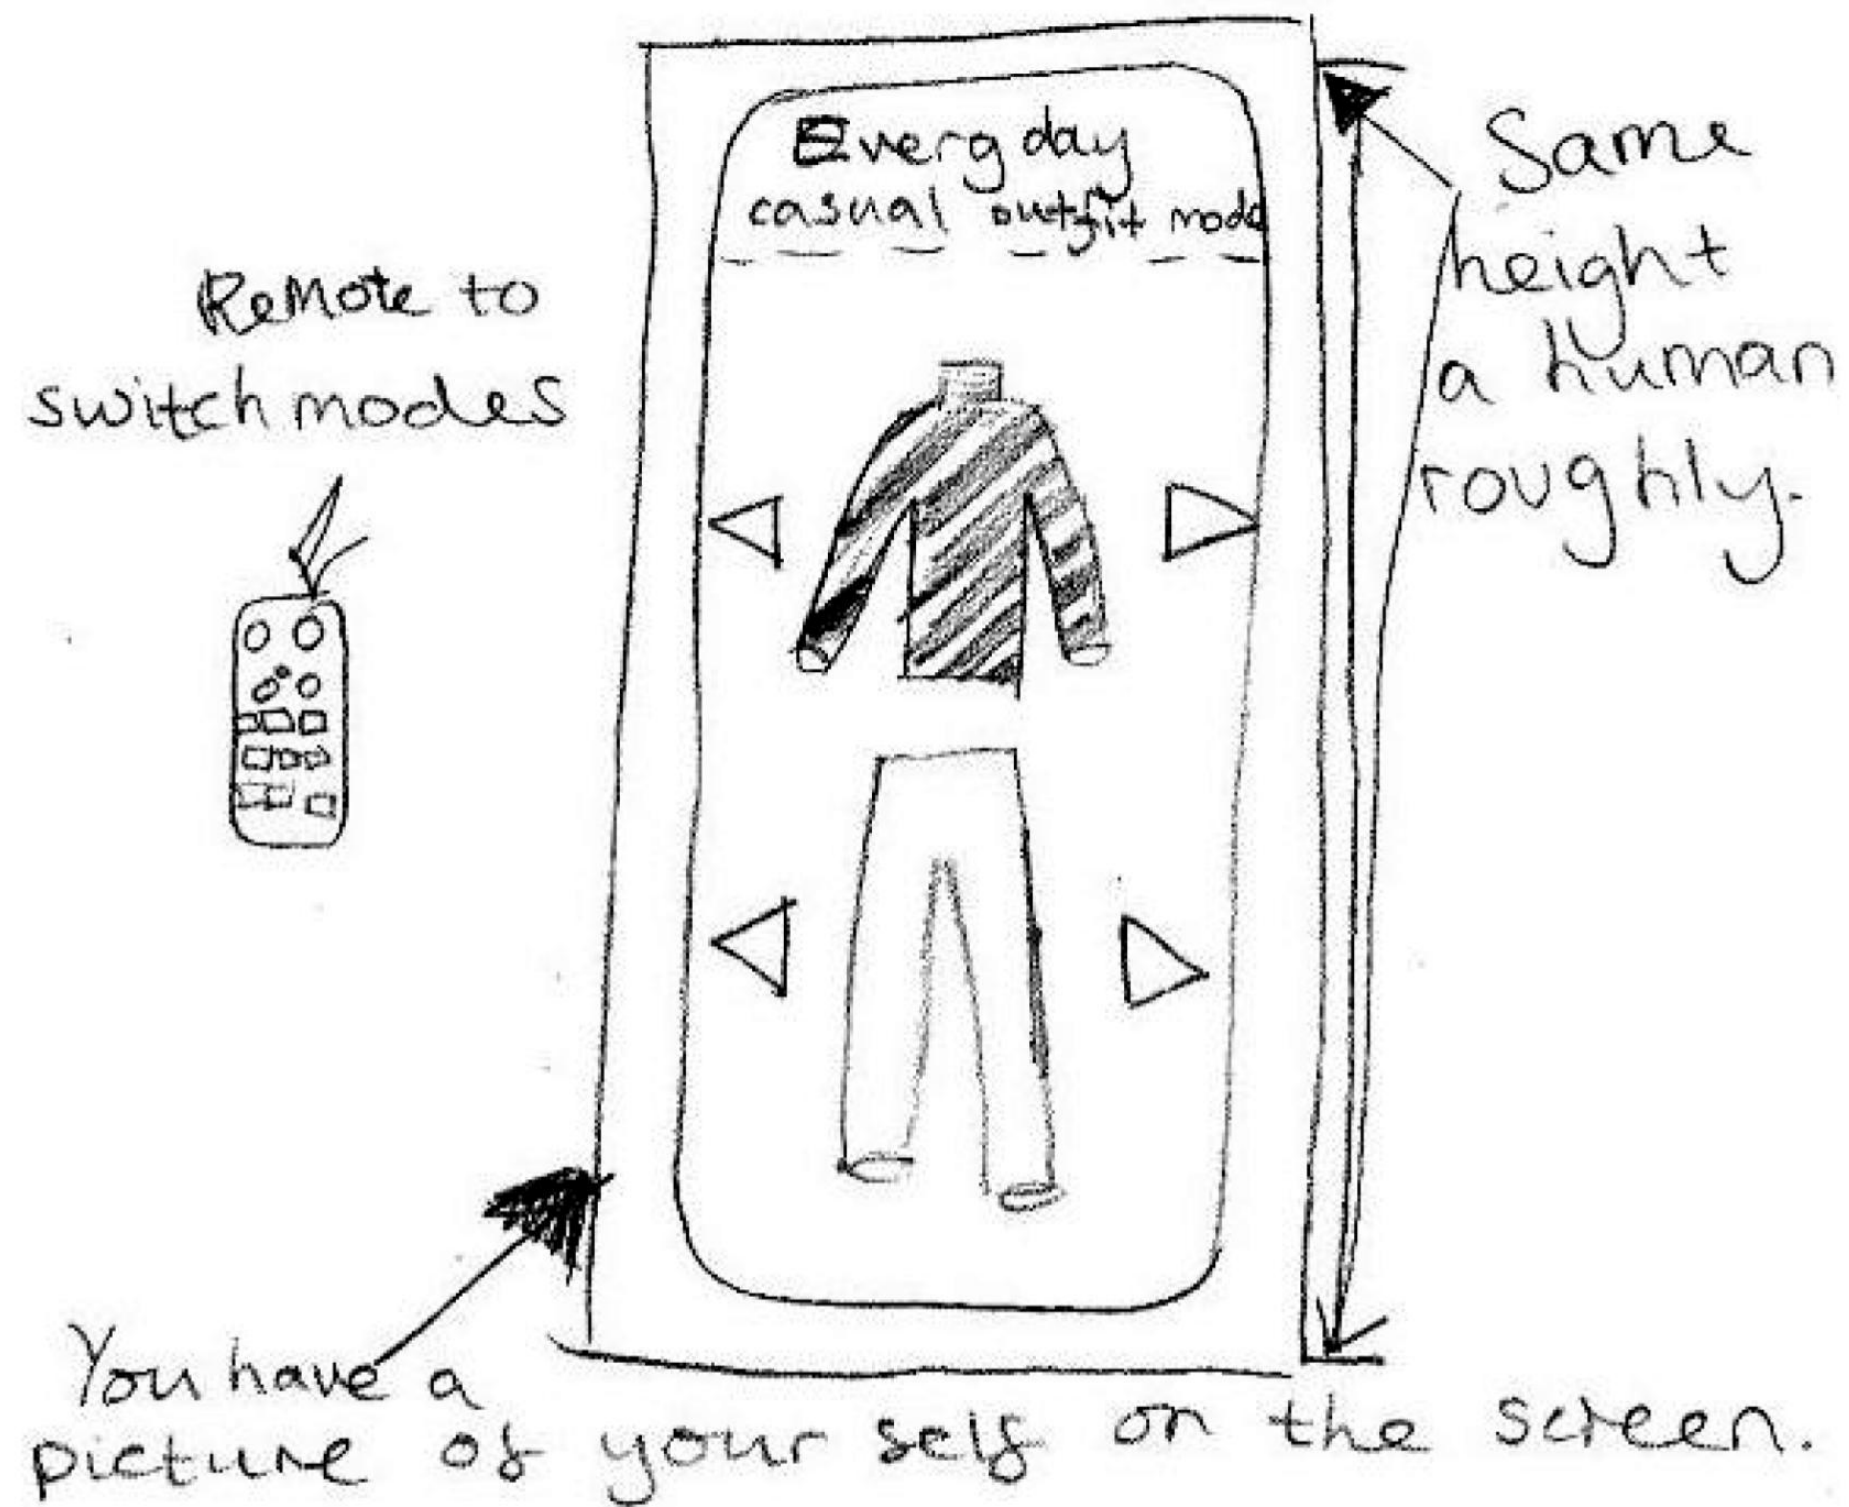 Everyday
casual outfit mode
Remote to
switch modes
Same
height
a human
roughly.
You have a
picture of your self on the screen.